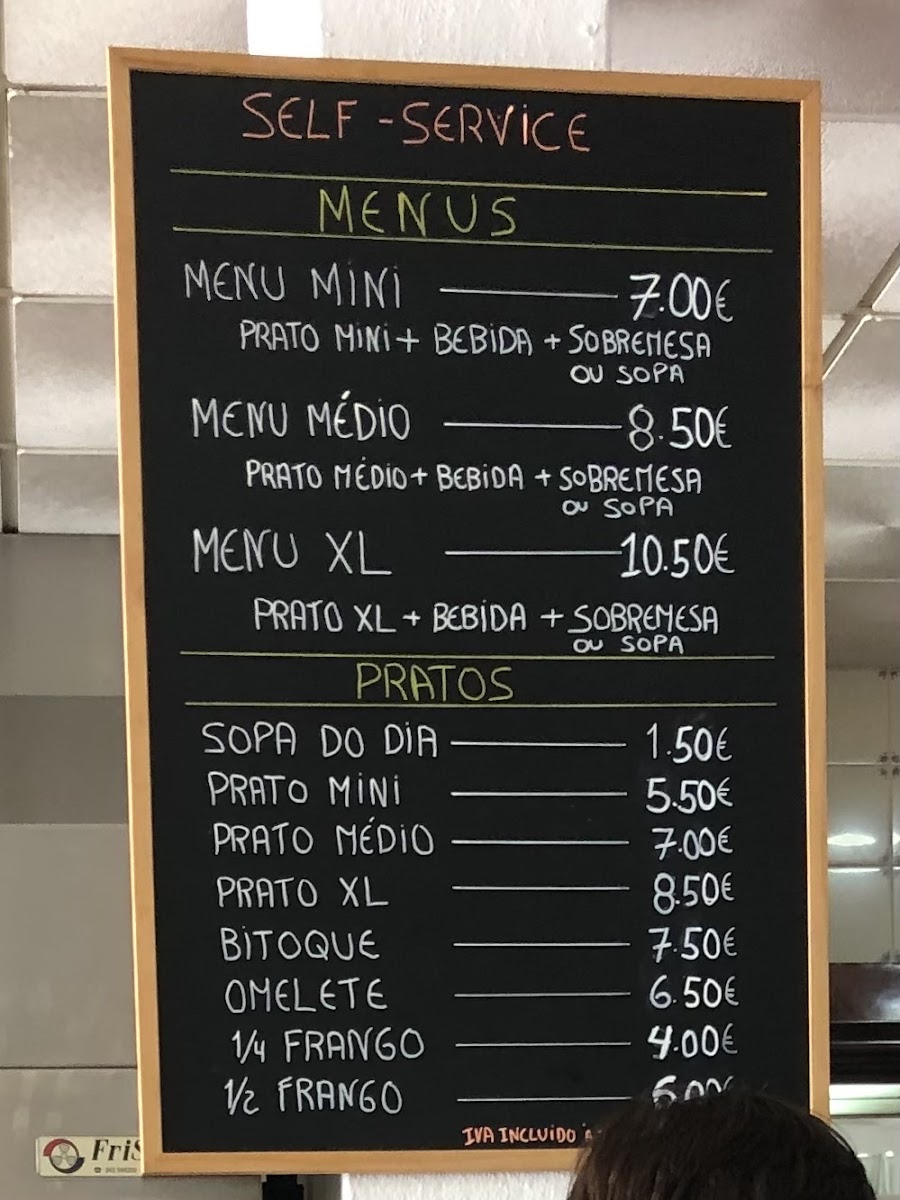 SELF-SERVICE
MENUS
MENU MINI 7.00€
PRATO MINI + BEBIDA + SOBREMESA
OU SOPA
MENU MÉDIO 8.50€
PRATO MÉDIO + BEBIDA + SOBREMESA
OU SOPA
MENU XL 10.50€
PRATO XL + BEBIDA + SOBREMESA
OU SOPA
PRATOS
SOPA DO DIA 1.50€
PRATO MINI 5.50€
PRATO MÉDIO 7.00€
PRATO XL 8.50€
BITOQUE 7.50€
OMELETE 6.50€
1/4 FRANGO 4.00€
1/2 FRANGO
IVA INCLUIDO